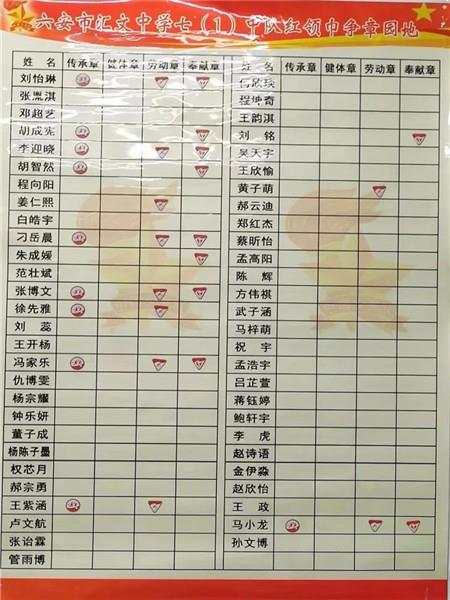 六安市汇文中学七（1）中队红领巾争章园地
姓 名 传承章 健体章 劳动章 奉献章 姓 名 传承章 健体章 劳动章 奉献章
刘怡琳
张胤淇 程坤奇
邓超艺 王韵淇
胡成宪 刘 铭
李迎晓 吴天宇
胡智然 王欣愉
程向阳 黄子萌
姜仁熙 郝云迪
白皓宇 郑红杰
刁岳晨 蔡昕怡
朱成媛 孟高阳
范壮斌 陈 辉
张博文 方伟祺
徐先雅 武子涵
刘 蕊 马梓萌
王开杨 祝 宇
冯家乐 孟浩宇
仇博雯 吕芷萱
杨宗耀 蒋钰婷
钟乐妍 鲍轩宇
董子成 李 虎
杨陈子墨 赵诗语
权芯月 金伊淼
郝宗勇 赵欣怡
王紫涵 王 政
卢文航 马小龙
张诒霖 孙文博
管雨博